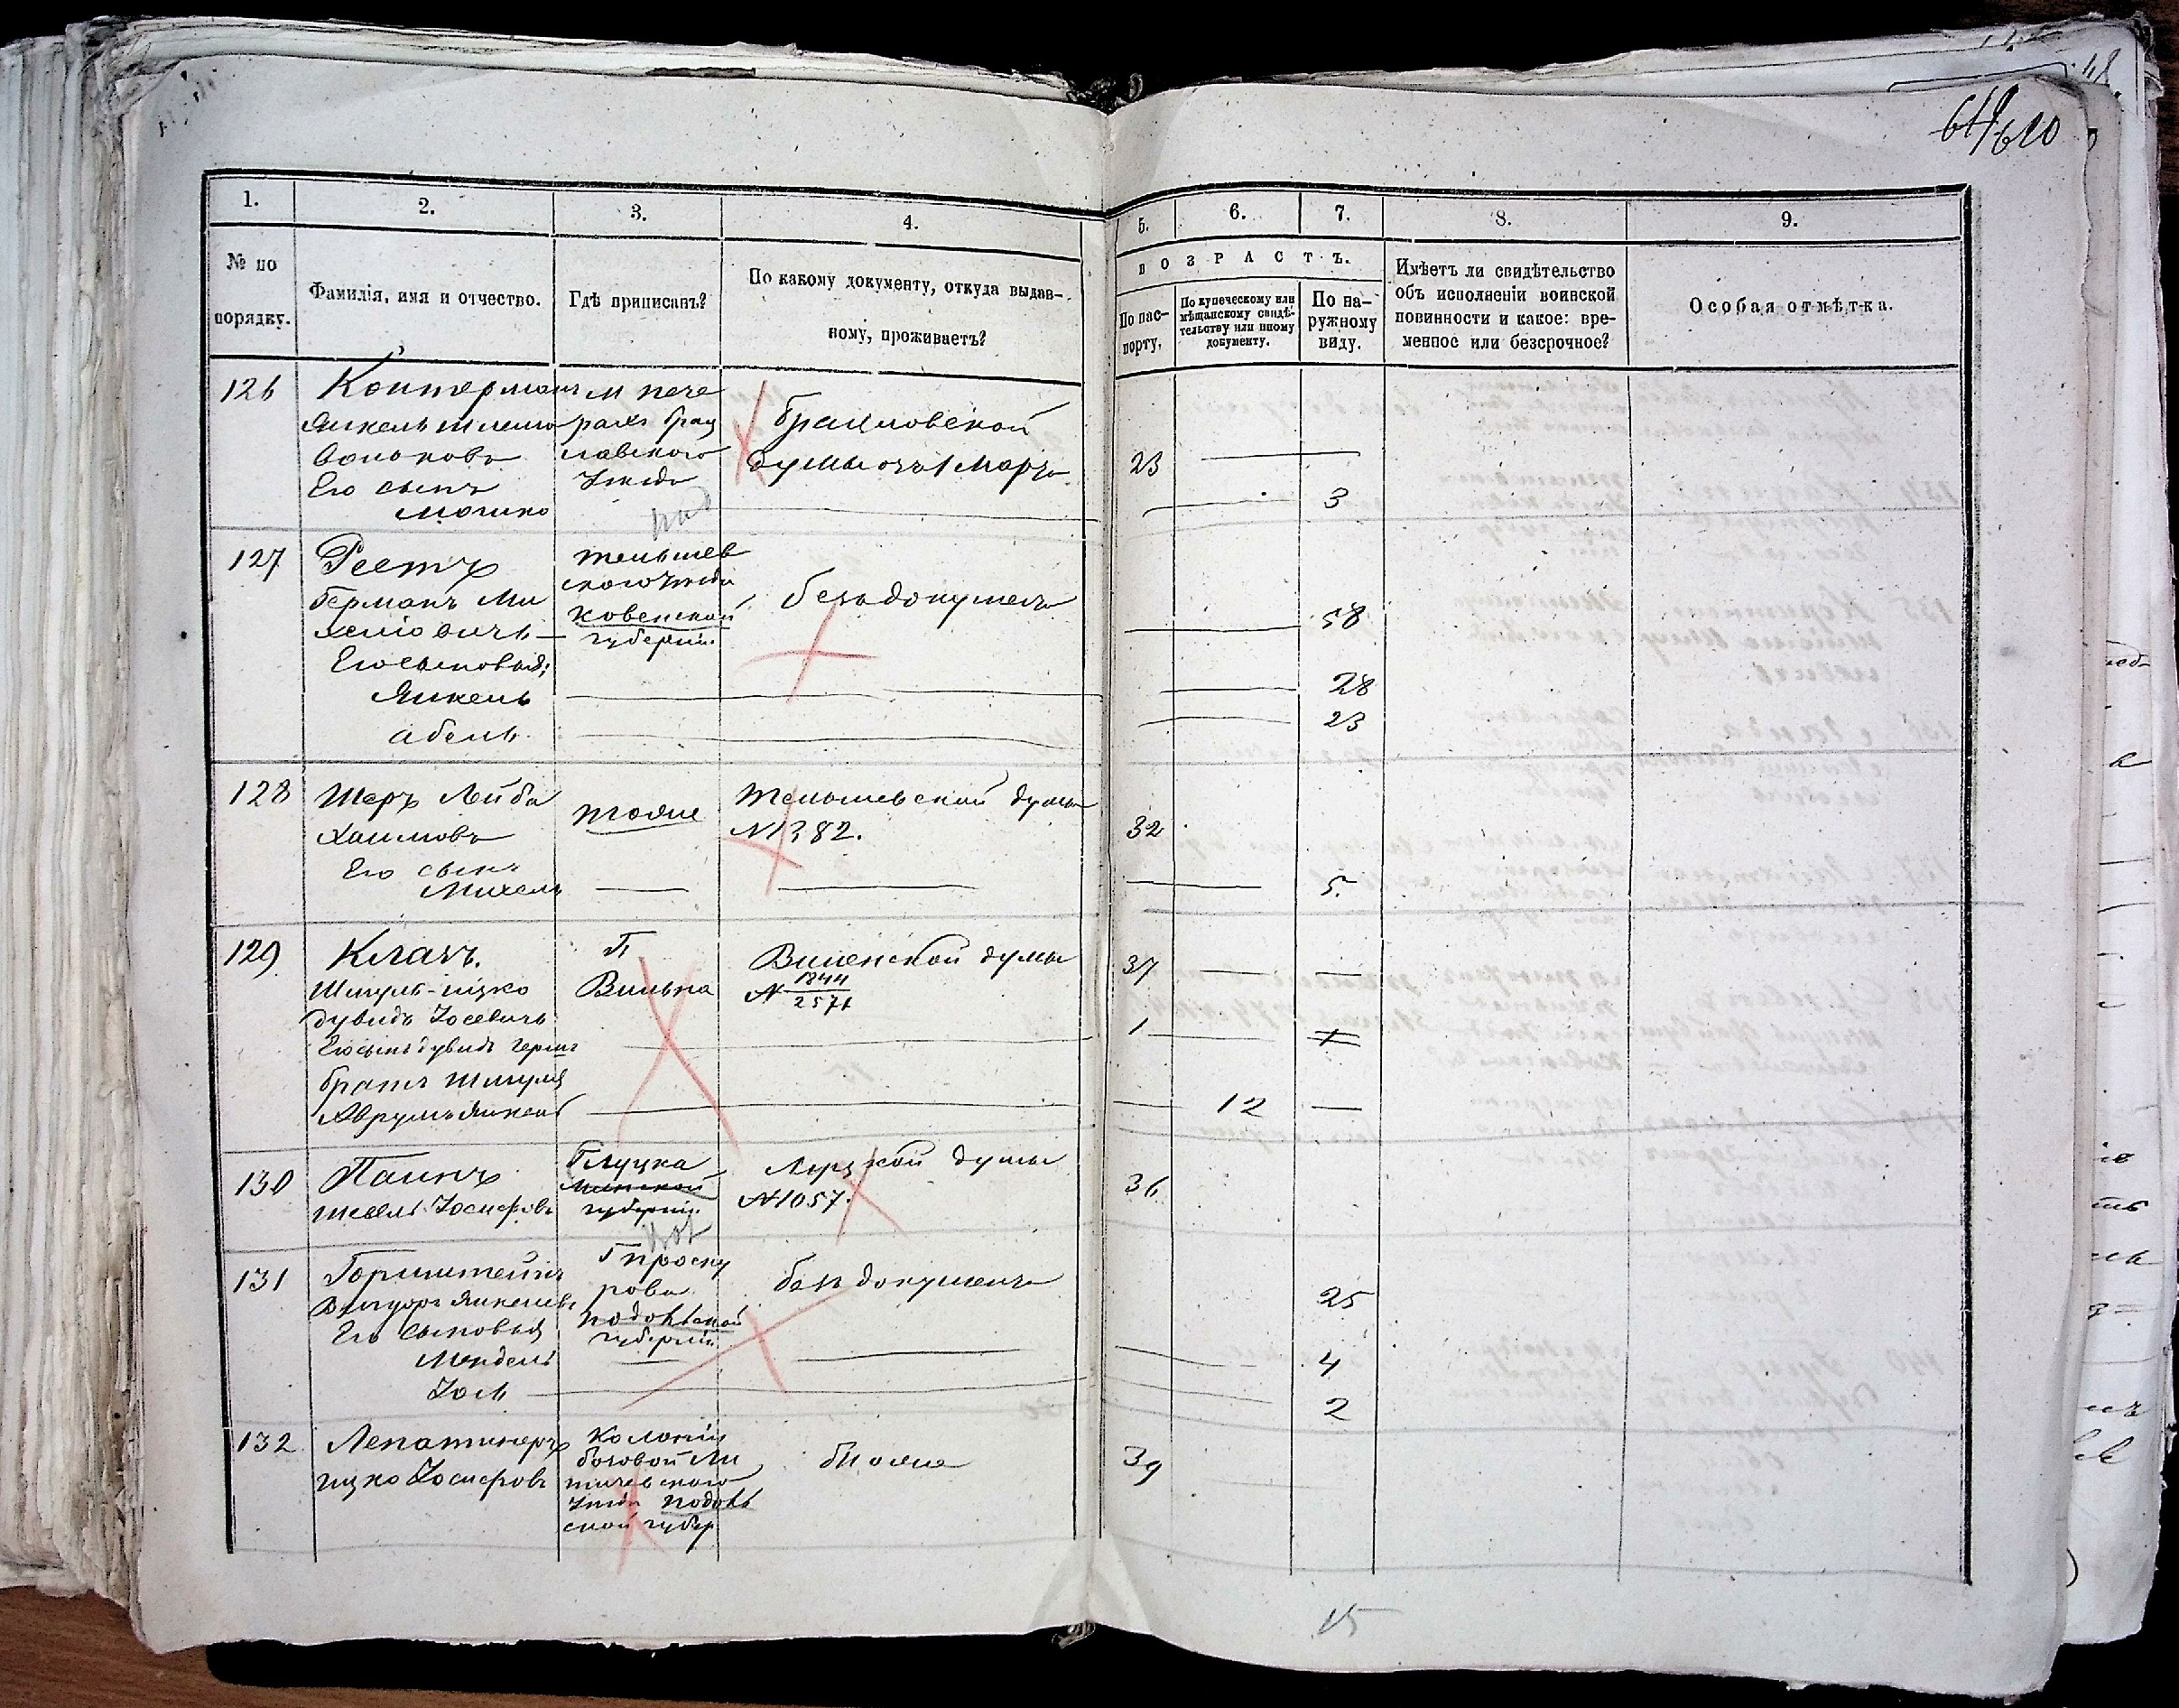 619/620
1.
2.
3.
4.
5.
6.
7.
8.
9.
№ по порядку.
Фамилія, имя и отчество.
Гдѣ приписанъ?
По какому документу, откуда выдан-
ному, проживаетъ?
ВОЗРАСТЪ.
По пас-
порту.
По купеческому или
мѣщанскому свидѣ-
тельству или иному
документу.
По на-
ружному
виду.
Имѣетъ ли свидѣтельство
объ исполненіи воинской
повинности и какое: вре-
менное или безсрочное?
Особая отмѣтка.
126
Контерманъ
Янкель Шлемо
Его сынъ
Мошко
м пече
ра брац
лавского
Уезда
под
думы отъ 1 Марта
23
3
127
Германъ Ми
хелiовичъ
Его сыновья:
Янкель
Абель
тельшев
ского Уезда
Ковенской
губерніи.
безъ документа
58
28
23
128
Шеръ Лейба
Хаимовъ
Его сынъ
Михель
тоже
Тельшевской думы
№ 1382.
32
5.
129
Клачъ.
Шмуль-ицко
дувидъ Іосевичъ
Его сынъ дувидъ герш
братъ Шмуля
Аврумъ Янкель
Г.
Вильна
Виленской думы
№ 1844
2571
37
1
12
130
Іосифовъ
Г Слуцка
Минской
губерніи.
думы
№ 1057.
36
131
Горинштейнъ
Янкелевъ
Его сыновья
Мендель
Іось
Г Проску
рова
подольской
губерніи
без документа
25
4
2
132
ицко Іосифовъ
Колоніи
тичевского
Уезда подоль
ской губер
39
15